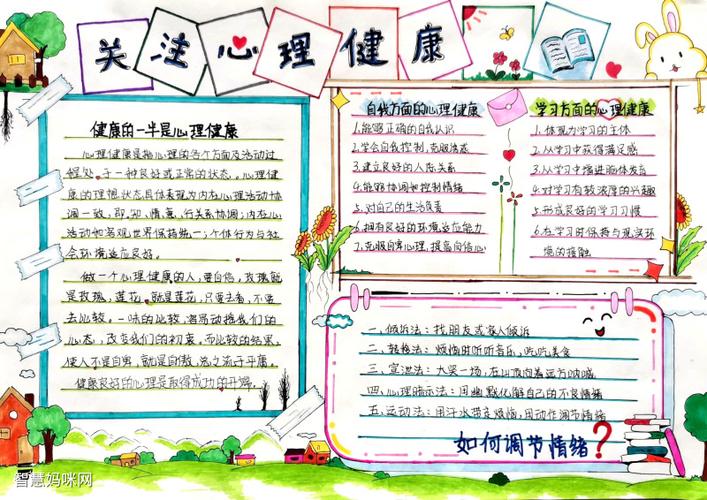 关注心理健康
健康的一半是心理健康
心理健康是指心理的各个方面及活动过
程处于一种良好或正常的状态。心理健
康的理想状态具体表现为内在心理活动协
调一致，即知、情、意、行关系协调；内在心
活动和客观世界保持统一；个体行为与社
会环境适应良好。
做一个心理健康的人，要自信，玫瑰就
是玫瑰，莲花就是莲花，只要去看，不要
去比较。一味的比较
心态，改变我们的初衷，而比较的结果，
使人不是自卑，就是自傲，总之流于平庸。
健康良好的心理是取得成功的开端。
自我方面的心理健康
1.能够正确的自我认识
2.学会自我控制，克服
3.建立良好的人际关系
4.能够协调和控制情绪
5.对自己的生活负责
6.拥有良好的环境适应能力
7.克服自卑心理，提高自信心
学习方面的心理健康
1.体现为学习的主体
2.从学习中获得满足感
3.从学习中增进脑体发育
4.对学习有较浓厚的兴趣
5.形成良好的学习习惯
6.在学习时保持与现实环
境的接触
一、倾诉法：找朋友或家人倾诉
二、转移法：烦恼时听听音乐，吃吃美食
三、宣泄法：大哭一场，在山顶向着远方呐喊
四、心理暗示法：用幽默化解自己的不良情绪
五、运动法：用汗水带走烦恼，用动作调节情绪
如何调节情绪？
智慧妈咪网